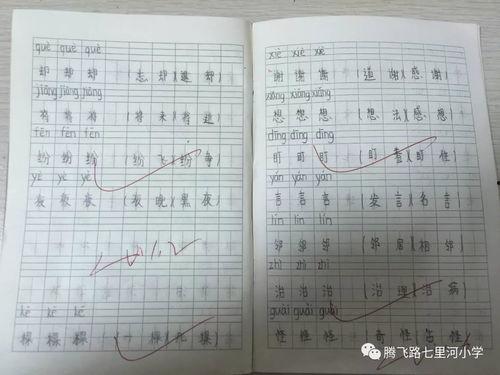 què què què
却 却 却 (忘 却)(退 却)
jiāng jiāng jiāng
将 将 将 (将 来)(将 近)
fēn fēn fēn
纷 纷 纷 (纷 飞)(纷 争)
yè yè yè
夜 夜 夜 (夜 晚)(黑 夜)
kē kē kē
棵 棵 棵 (一 棵)(几 棵)
xiè xiè xiè
谢 谢 谢 (道 谢)(感 谢)
xiǎng xiǎng xiǎng
想 想 想 (想 法)(感 想)
dīng dīng dīng
盯 盯 盯 (盯 着)(盯 住)
yán yán yán
言 言 言 (发 言)(名 言)
lín lín lín
邻 邻 邻 (邻 居)(相 邻)
zhì zhì zhì
治 治 治 (治 理)(治 病)
guài guài guài
怪 怪 怪 (奇 怪)(古 怪)
腾飞路七里河小学